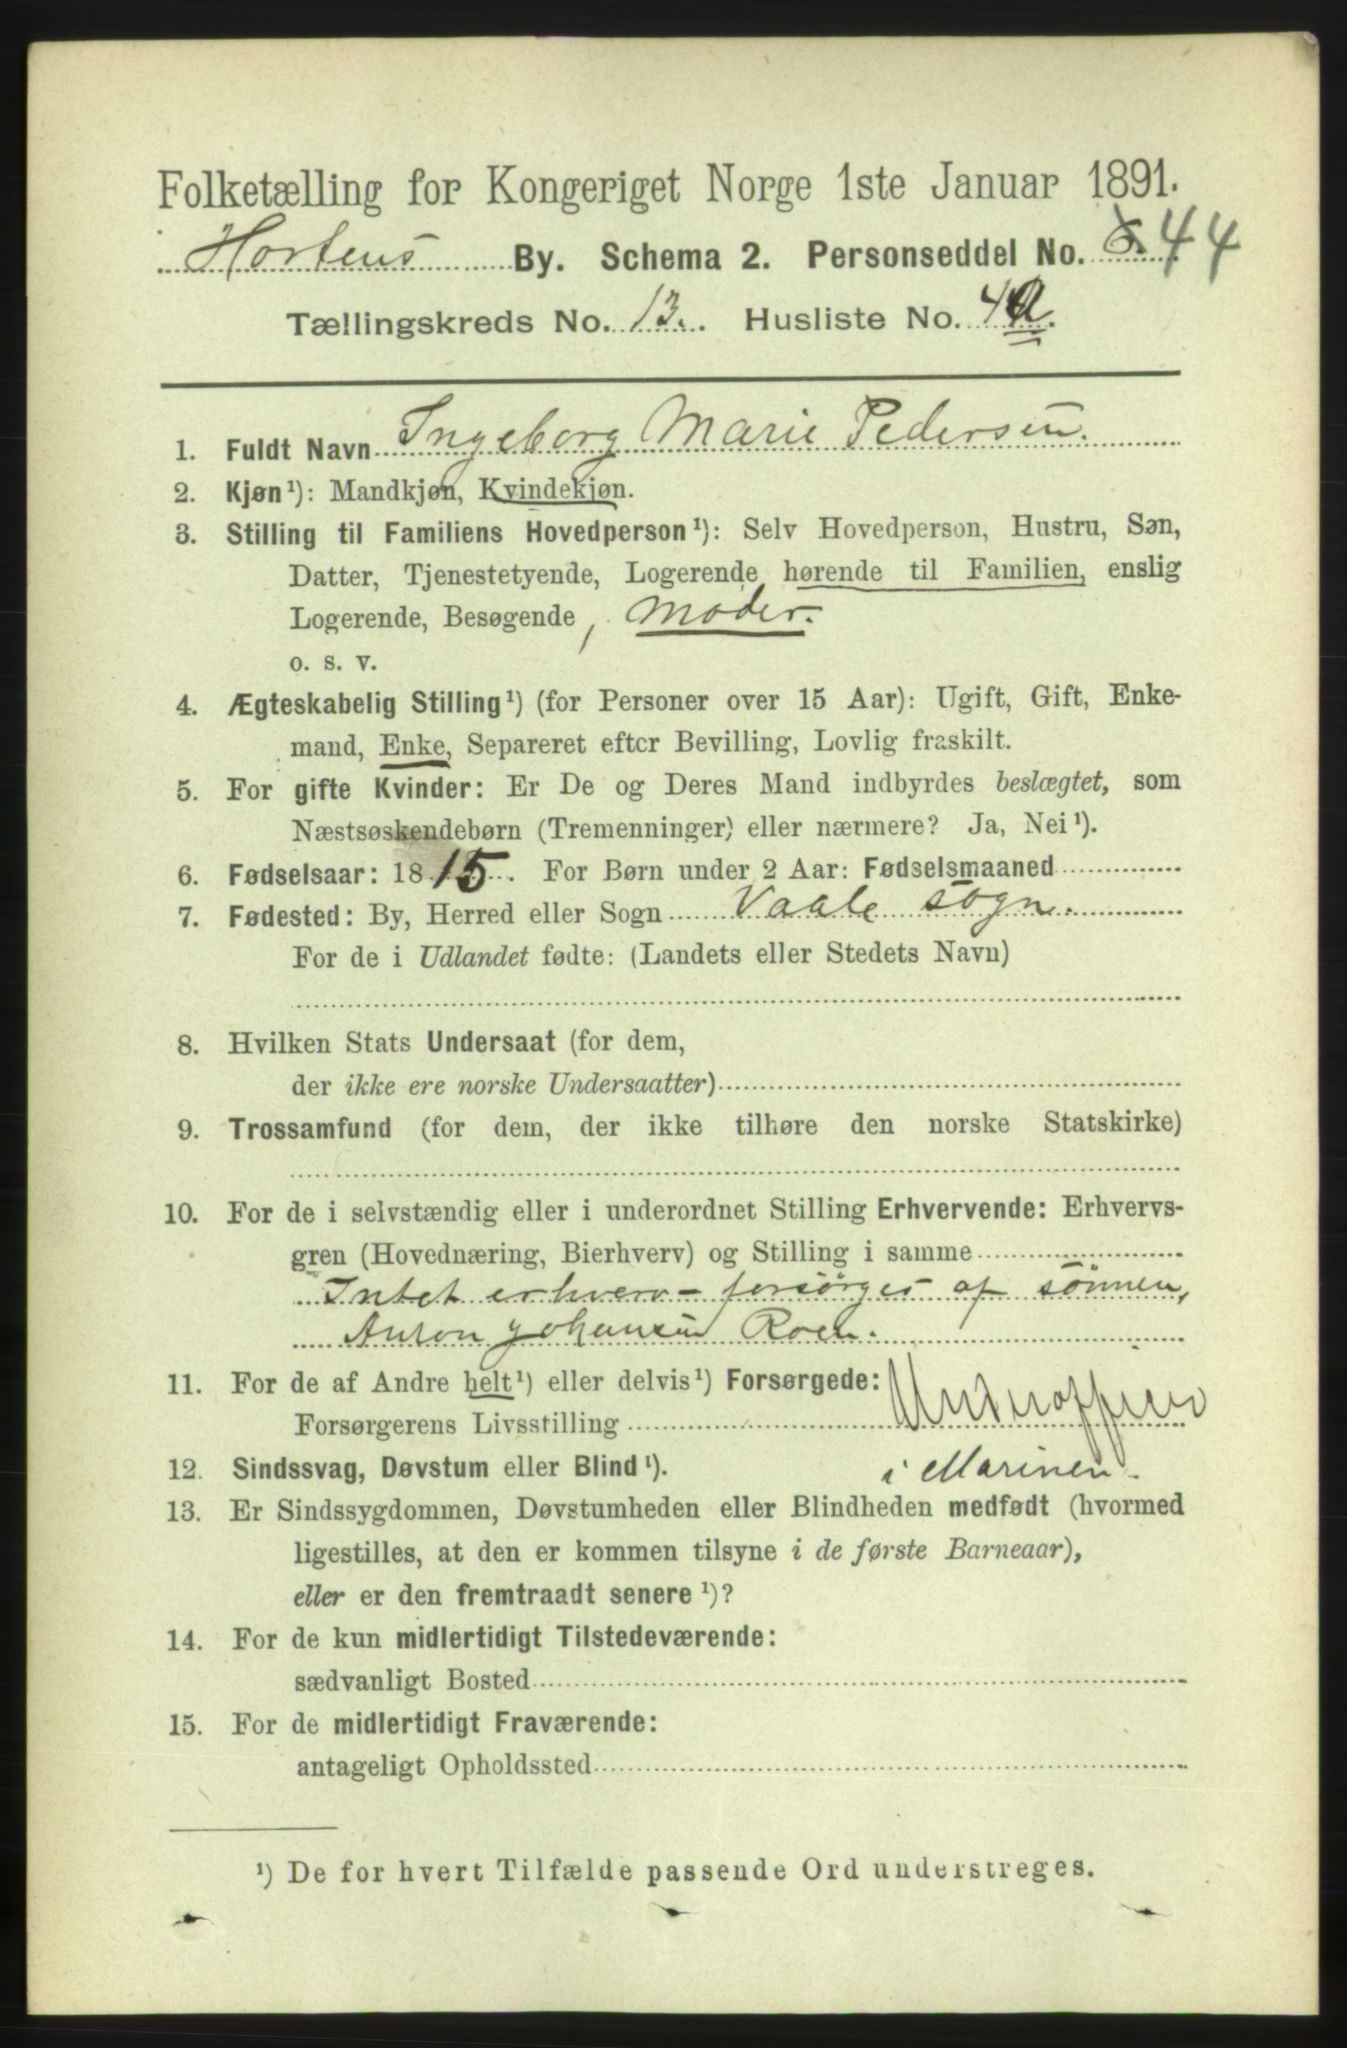 Folketælling for Kongeriget Norge 1ste Januar 1891.
Hortens By. Schema 2. Personseddel No. 44
Tællingskreds No. 13. Husliste No. 4a.
1. Fuldt Navn Ingeborg Marie Pedersen.
2. Kjøn¹): Mandkjøn, Kvindekjøn.
3. Stilling til Familiens Hovedperson¹): Selv Hovedperson, Hustru, Søn,
Datter, Tjenestetyende, Logerende hørende til Familien, enslig
Logerende, Besøgende, Moder.
o. s. v.
4. Ægteskabelig Stilling¹) (for Personer over 15 Aar): Ugift, Gift, Enke-
mand, Enke, Separeret efter Bevilling, Lovlig fraskilt.
5. For gifte Kvinder: Er De og Deres Mand indbyrdes beslægtet, som
Næstsøskendebørn (Tremenninger) eller nærmere? Ja, Nei¹).
6. Fødselsaar: 1815. For Børn under 2 Aar: Fødselsmaaned
7. Fødested: By, Herred eller Sogn Vaale sogn.
For de i Udlandet fødte: (Landets eller Stedets Navn)
8. Hvilken Stats Undersaat (for dem,
der ikke ere norske Undersaatter)
9. Trossamfund (for dem, der ikke tilhøre den norske Statskirke)
10. For de i selvstændig eller i underordnet Stilling Erhvervende: Erhvervs-
gren (Hovednæring, Bierhverv) og Stilling i samme
Intet erhverv - forsørges af sønnen,
Anton Johansen Roen.
11. For de af Andre helt¹) eller delvis¹) Forsørgede:
Forsørgerens Livsstilling Underofficer
12. Sindssvag, Døvstum eller Blind¹). i Marinen.
13. Er Sindssygdommen, Døvstumheden eller Blindheden medfødt (hvormed
ligestilles, at den er kommen tilsyne i de første Barneaar),
eller er den fremtraadt senere¹)?
14. For de kun midlertidigt Tilstedeværende:
sædvanligt Bosted
15. For de midlertidigt Fraværende:
antageligt Opholdssted
¹) De for hvert Tilfælde passende Ord understreges.